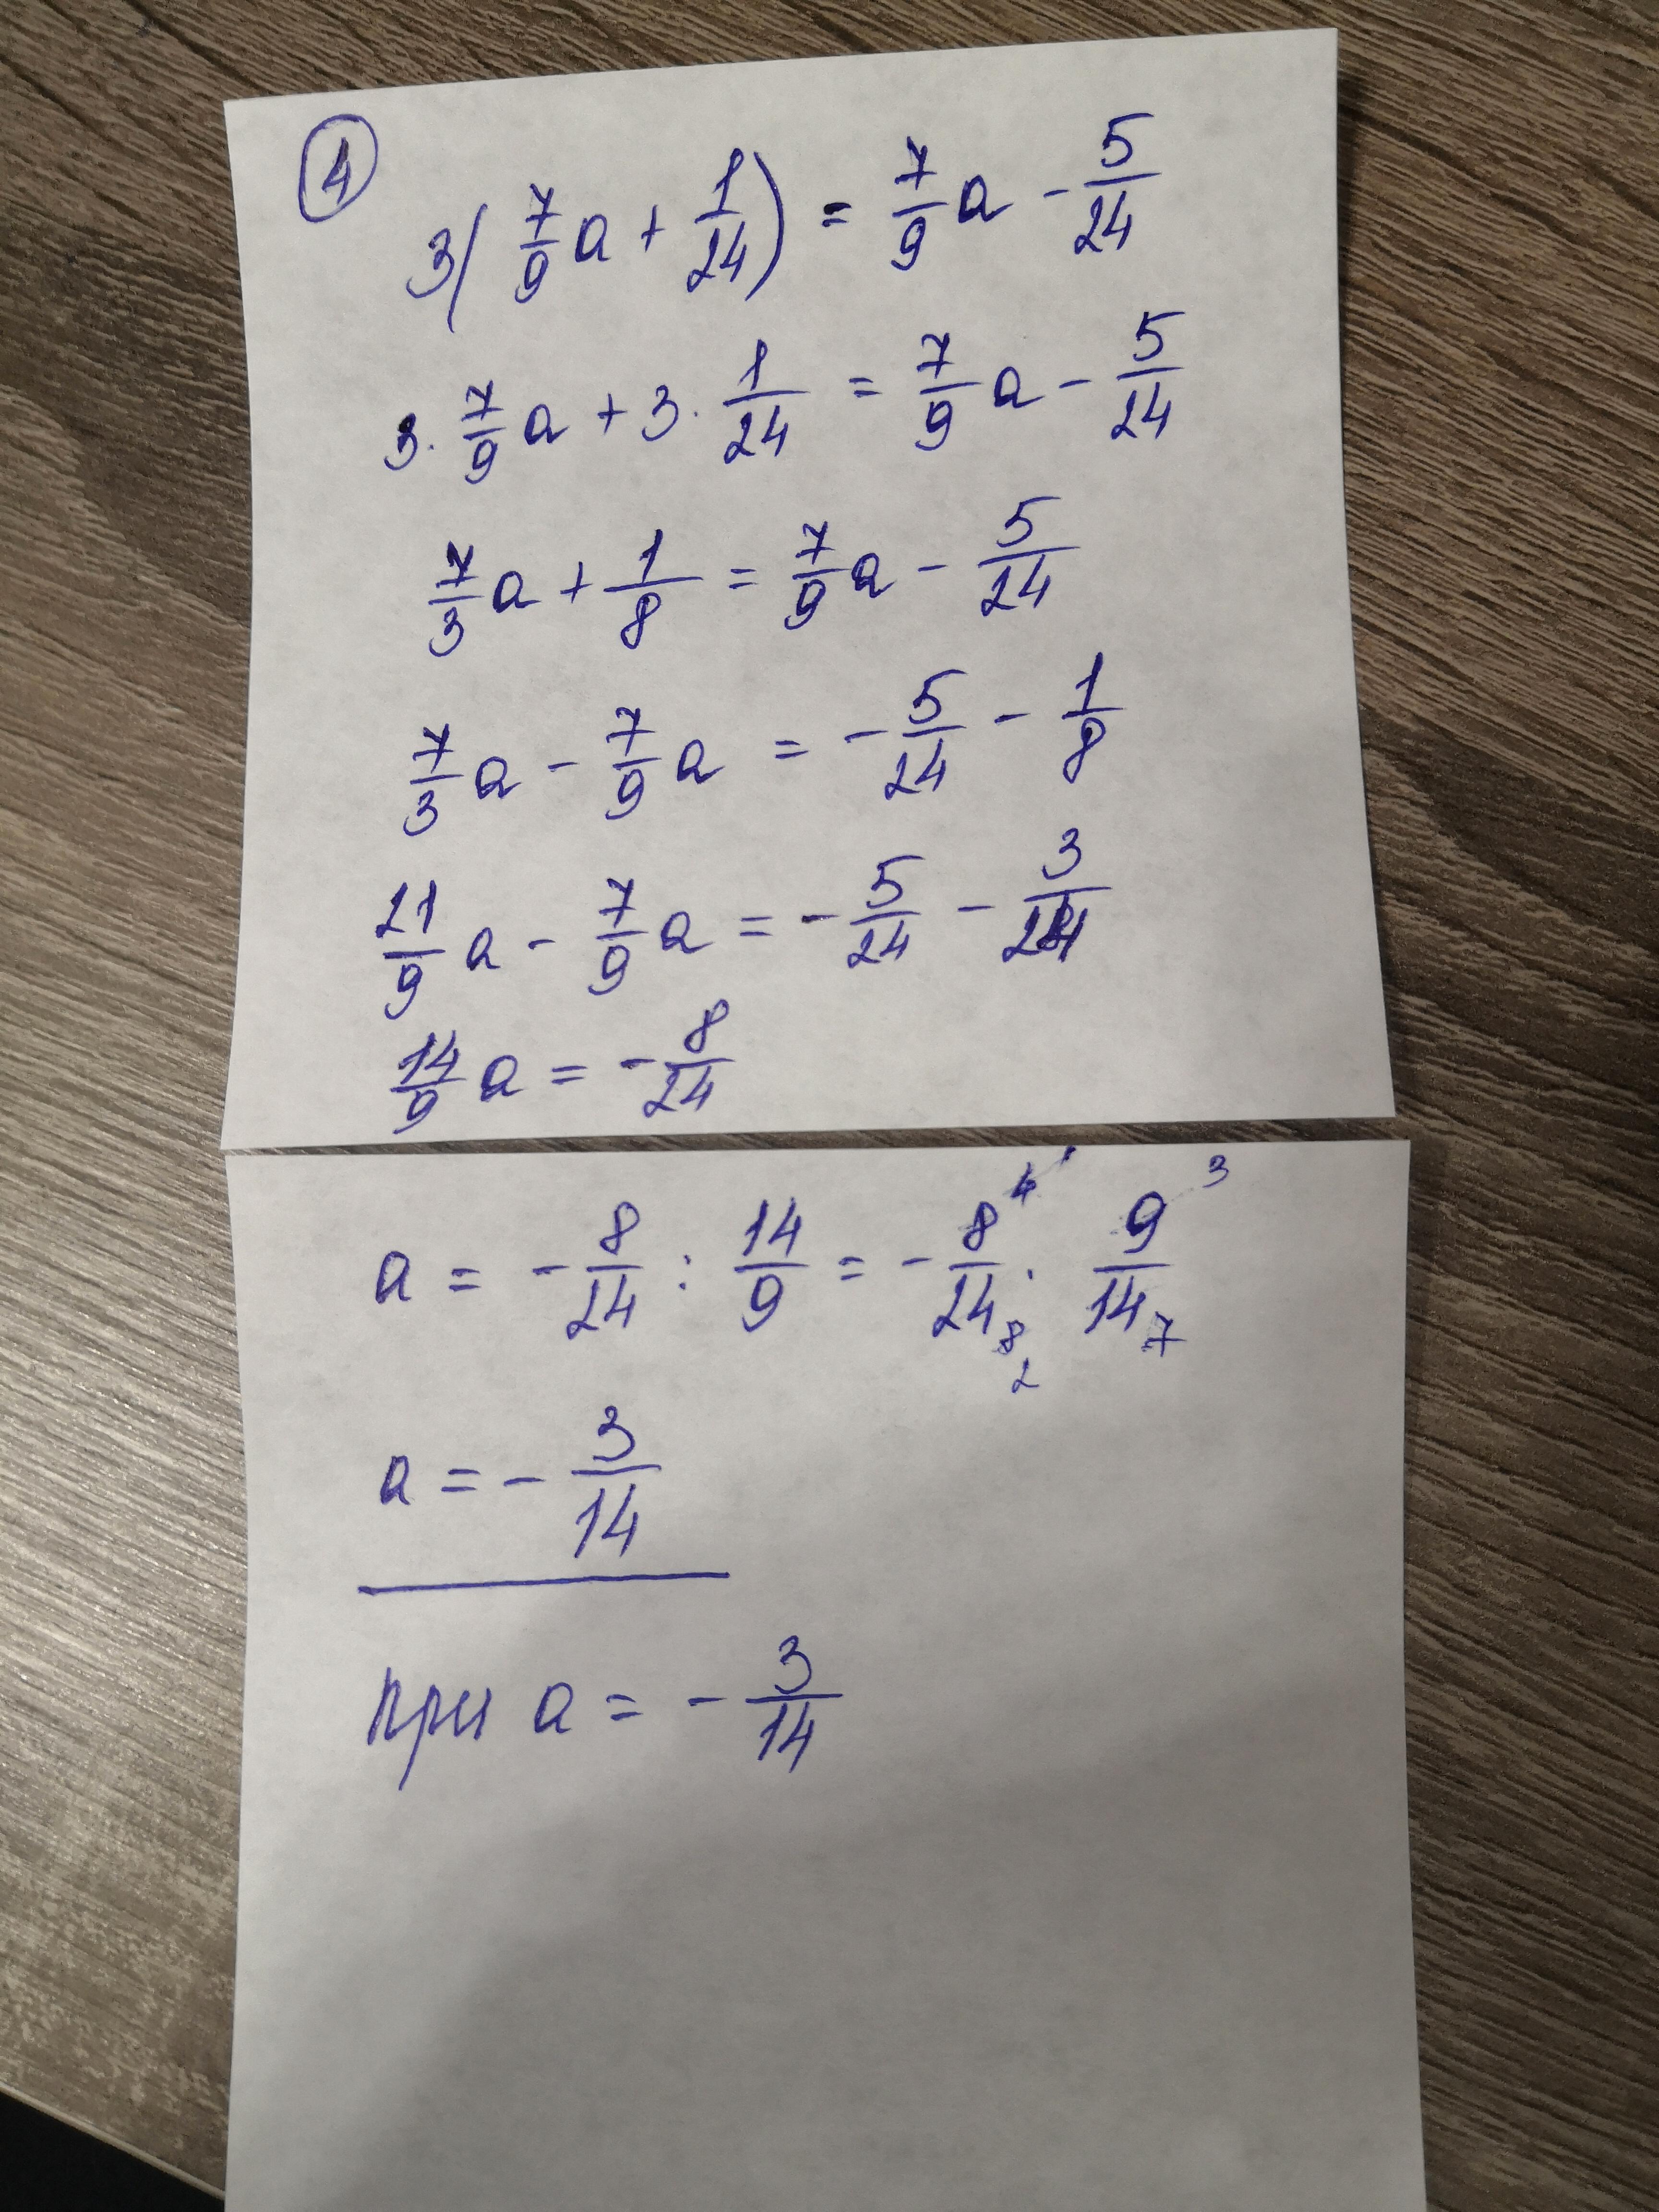 4
3(7/9 a + 1/24) = 7/9 a - 5/24
3 · 7/9 a + 3 · 1/24 = 7/9 a - 5/24
7/3 a + 1/8 = 7/9 a - 5/24
7/3 a - 7/9 a = - 5/24 - 1/8
21/9 a - 7/9 a = - 5/24 - 3/24
14/9 a = - 8/24
a = - 8/24 : 14/9 = - 8/24 · 9/14 4 1 3 8 2 7
a = - 3/14
при a = - 3/14